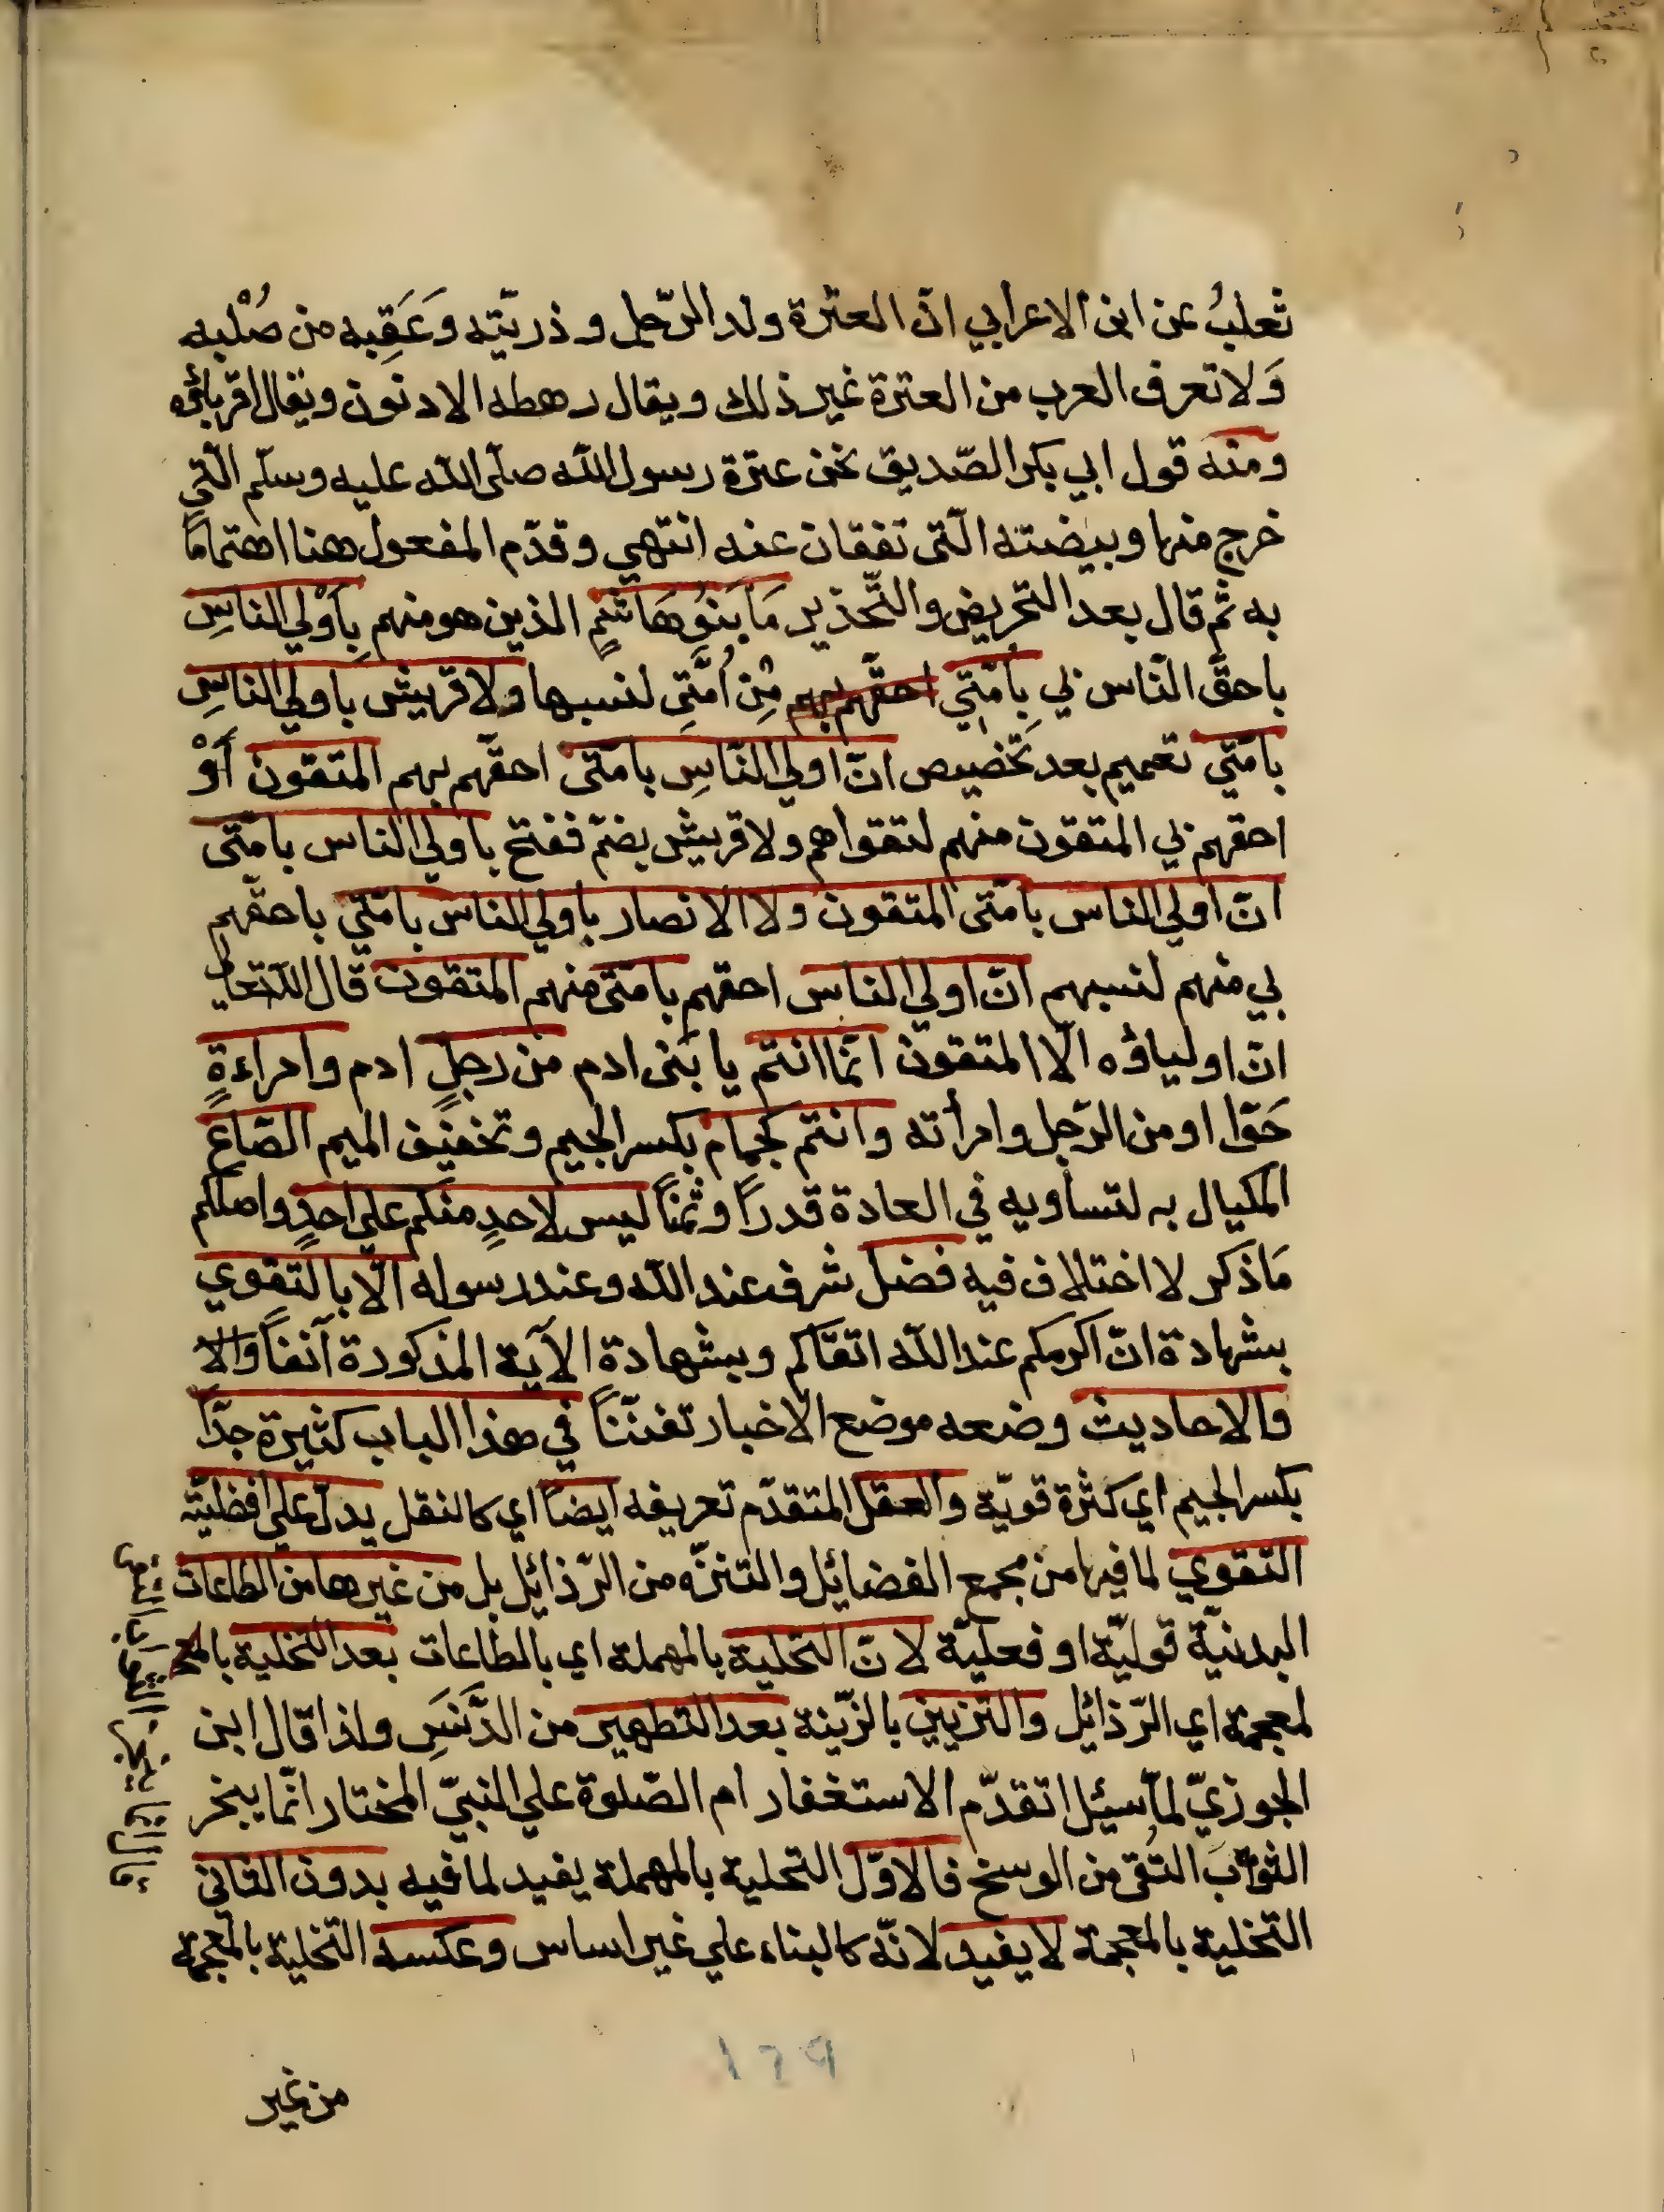 ثعلبُ عن ابن الاعرابي انّ العترة ولد الرّجل و ذريّته وَعَقِبه من صُلْبه
وَلا تعرف العرب من العترة غير ذلك ويقال رهطه الادنون ويقال اقربائه
ومنه قول ابي بكر الصّديق نحن عترة رسول اللّه صلّى اللّه عليه وسلّم الّتي
خرج منها وبيضته الّتى تفقان عنه انتهي وقدّم المفعول هنا اهتمامًا
به ثمّ قال بعد التحريض والتّحذير مَا بَنوُ هَاشمٍ الذين هو منهم بِاَوْلي الناسِ
باحقّ النّاس بي بِامّتِي احقّهم بهم مِنْ اُمَّتِى لنسبها ولا قريش باولي الناسِ
بامّتي تعميم بعد تخصيص انّ اولي النّاسِ بامّتى احقّهم بهم المتقون أَوْ
احقهم بي المتقون منهم لتقواهم ولا قريش بضمّ ففتح باولي الناس بامّتى
انّ اولي الناس بامّتى المتقون ولا الانصار باولي الناس بامّتي باحقّهم
بي منهم لنسبهم انّ اولي الناس احقهم بامّتى منهم المتقون قال اللّه تعالى
انّ اولياؤه الّا المتقون انّما انتم يا بنى ادم من رجلٍ ادم وامراءةٍ
حَوّا او من الرّجل وامرأته وانتم كجمام بكسر الجيم وتخفيف الميم الصّاع
المكيال به لتساويه في العادة قدراً وثمناً ليس لاحدٍ منكم علي احدٍ واصلكم
مَا ذكر لا اختلاف فيه فضل شرف عند اللّه وعند رسوله الّا بالتّقوي
بشهادة انّ اكرمكم عند اللّه اتقاكم وبشهادة الآية المذكورة آنفاً والا
والاحاديث وضعه موضع الاخبار تفنّناً في هذا الباب كثيرة جدّاً
بكسر الجيم اي كثرة قويّة والعقل المتقدّم تعريفه ايضاً اي كالنقل يدلّ علي افضليّة
التقوي لما فيها من مجمع الفضائل والتنزّه من الرّذائل بل من غيرها من الطاعات
البدنيّة قوليّة او فعليّة لانّ التحلية بالمهملة اي بالطاعات بعد التخلية بالمح
لمعجمة اي الرّذائل والتزيين بالزّينة بعد التطهير من الدَّنَسَِ ولذا قال ابن
الجوزيّ لمّا سئيل اتقدّم الاستغفار ام الصّلوة علي النبيّ المختار انّما يبخر
الثوبَ النُقى من الوسخ فالاوّل التحلية بالمهملة يفيد لما فيه بدون الثاني
التخلية بالمعجمة لا يفيد لانّه كالبناء علي غير اساس وعكسه التخلية بالمعجمة
١٢٩
من غير